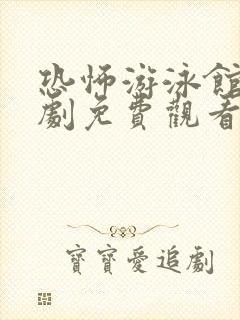 恐怖游泳館
劇免費觀看
寶寶愛追劇